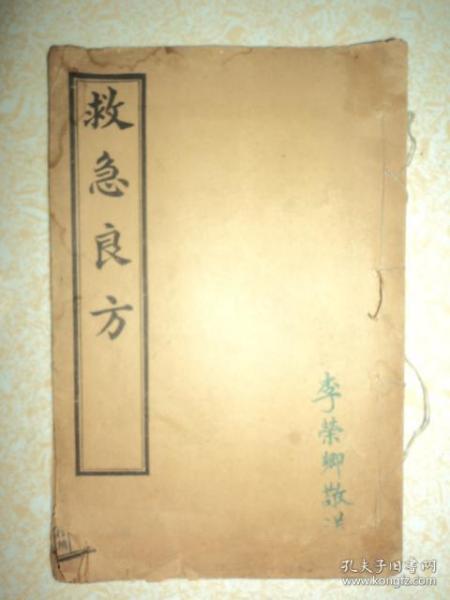 救急良方
李荣卿敬送
孔夫子旧书网
www.kongfz.com